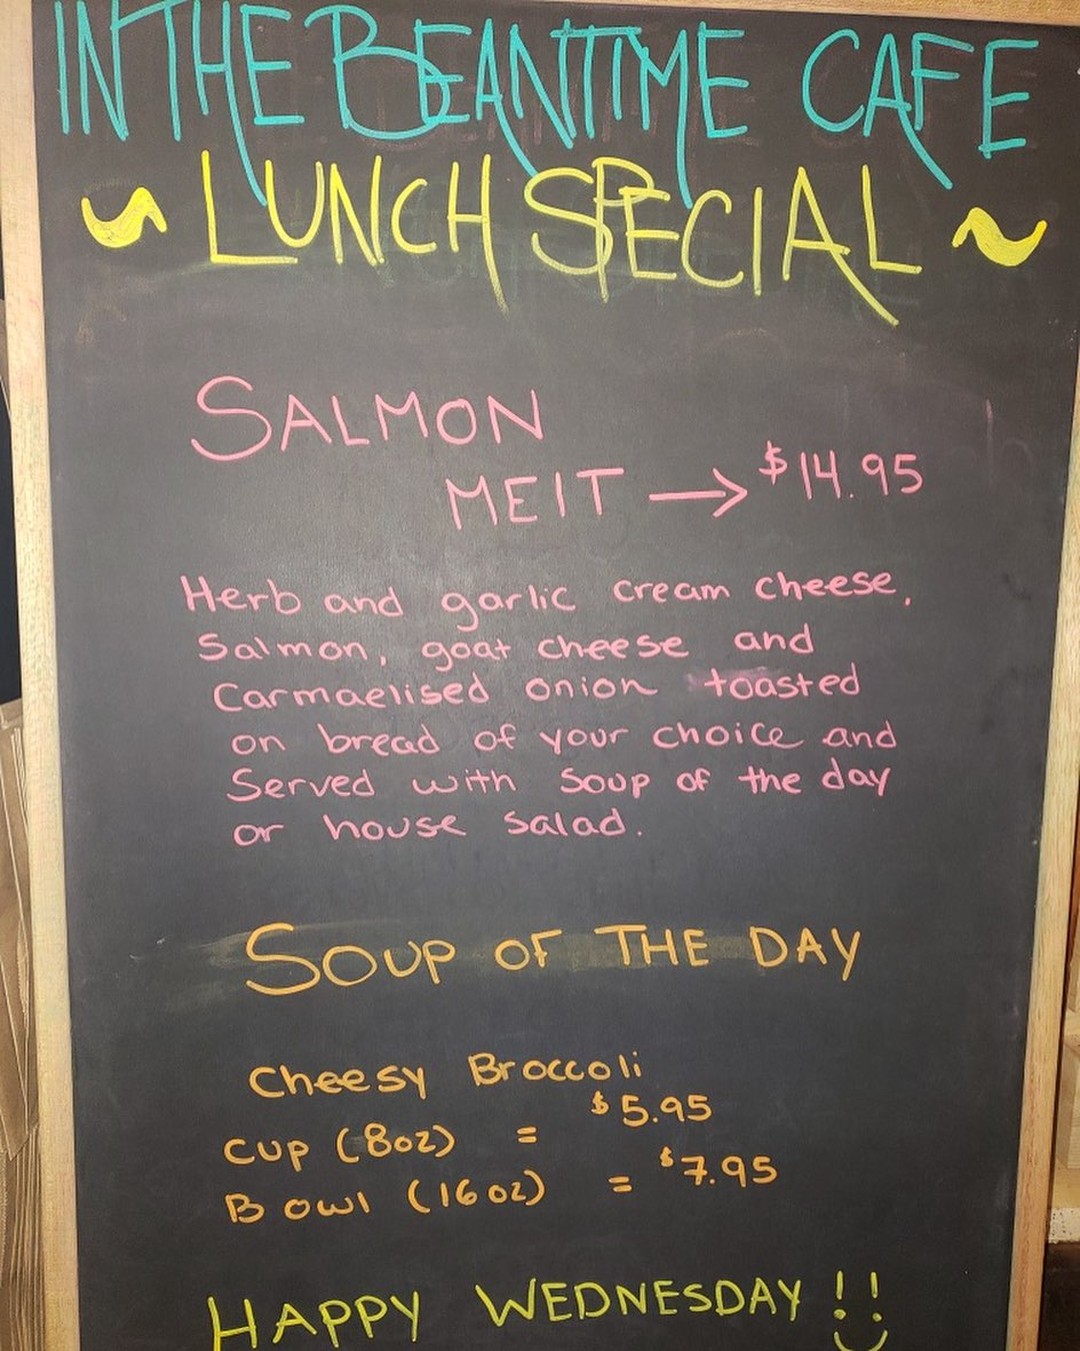 IN THE BEANTIME CAFE
~ LUNCH SPECIAL ~
SALMON
MElT → $14.95
Herb and garlic cream cheese,
Salmon, goat cheese and
Carmaelised onion toasted
on bread of your choice and
Served with Soup of the day
or house salad.
SOUP OF THE DAY
Cheesy Broccoli
Cup (8oz) = $5.95
Bowl (16oz) = $7.95
HAPPY WEDNESDAY!!